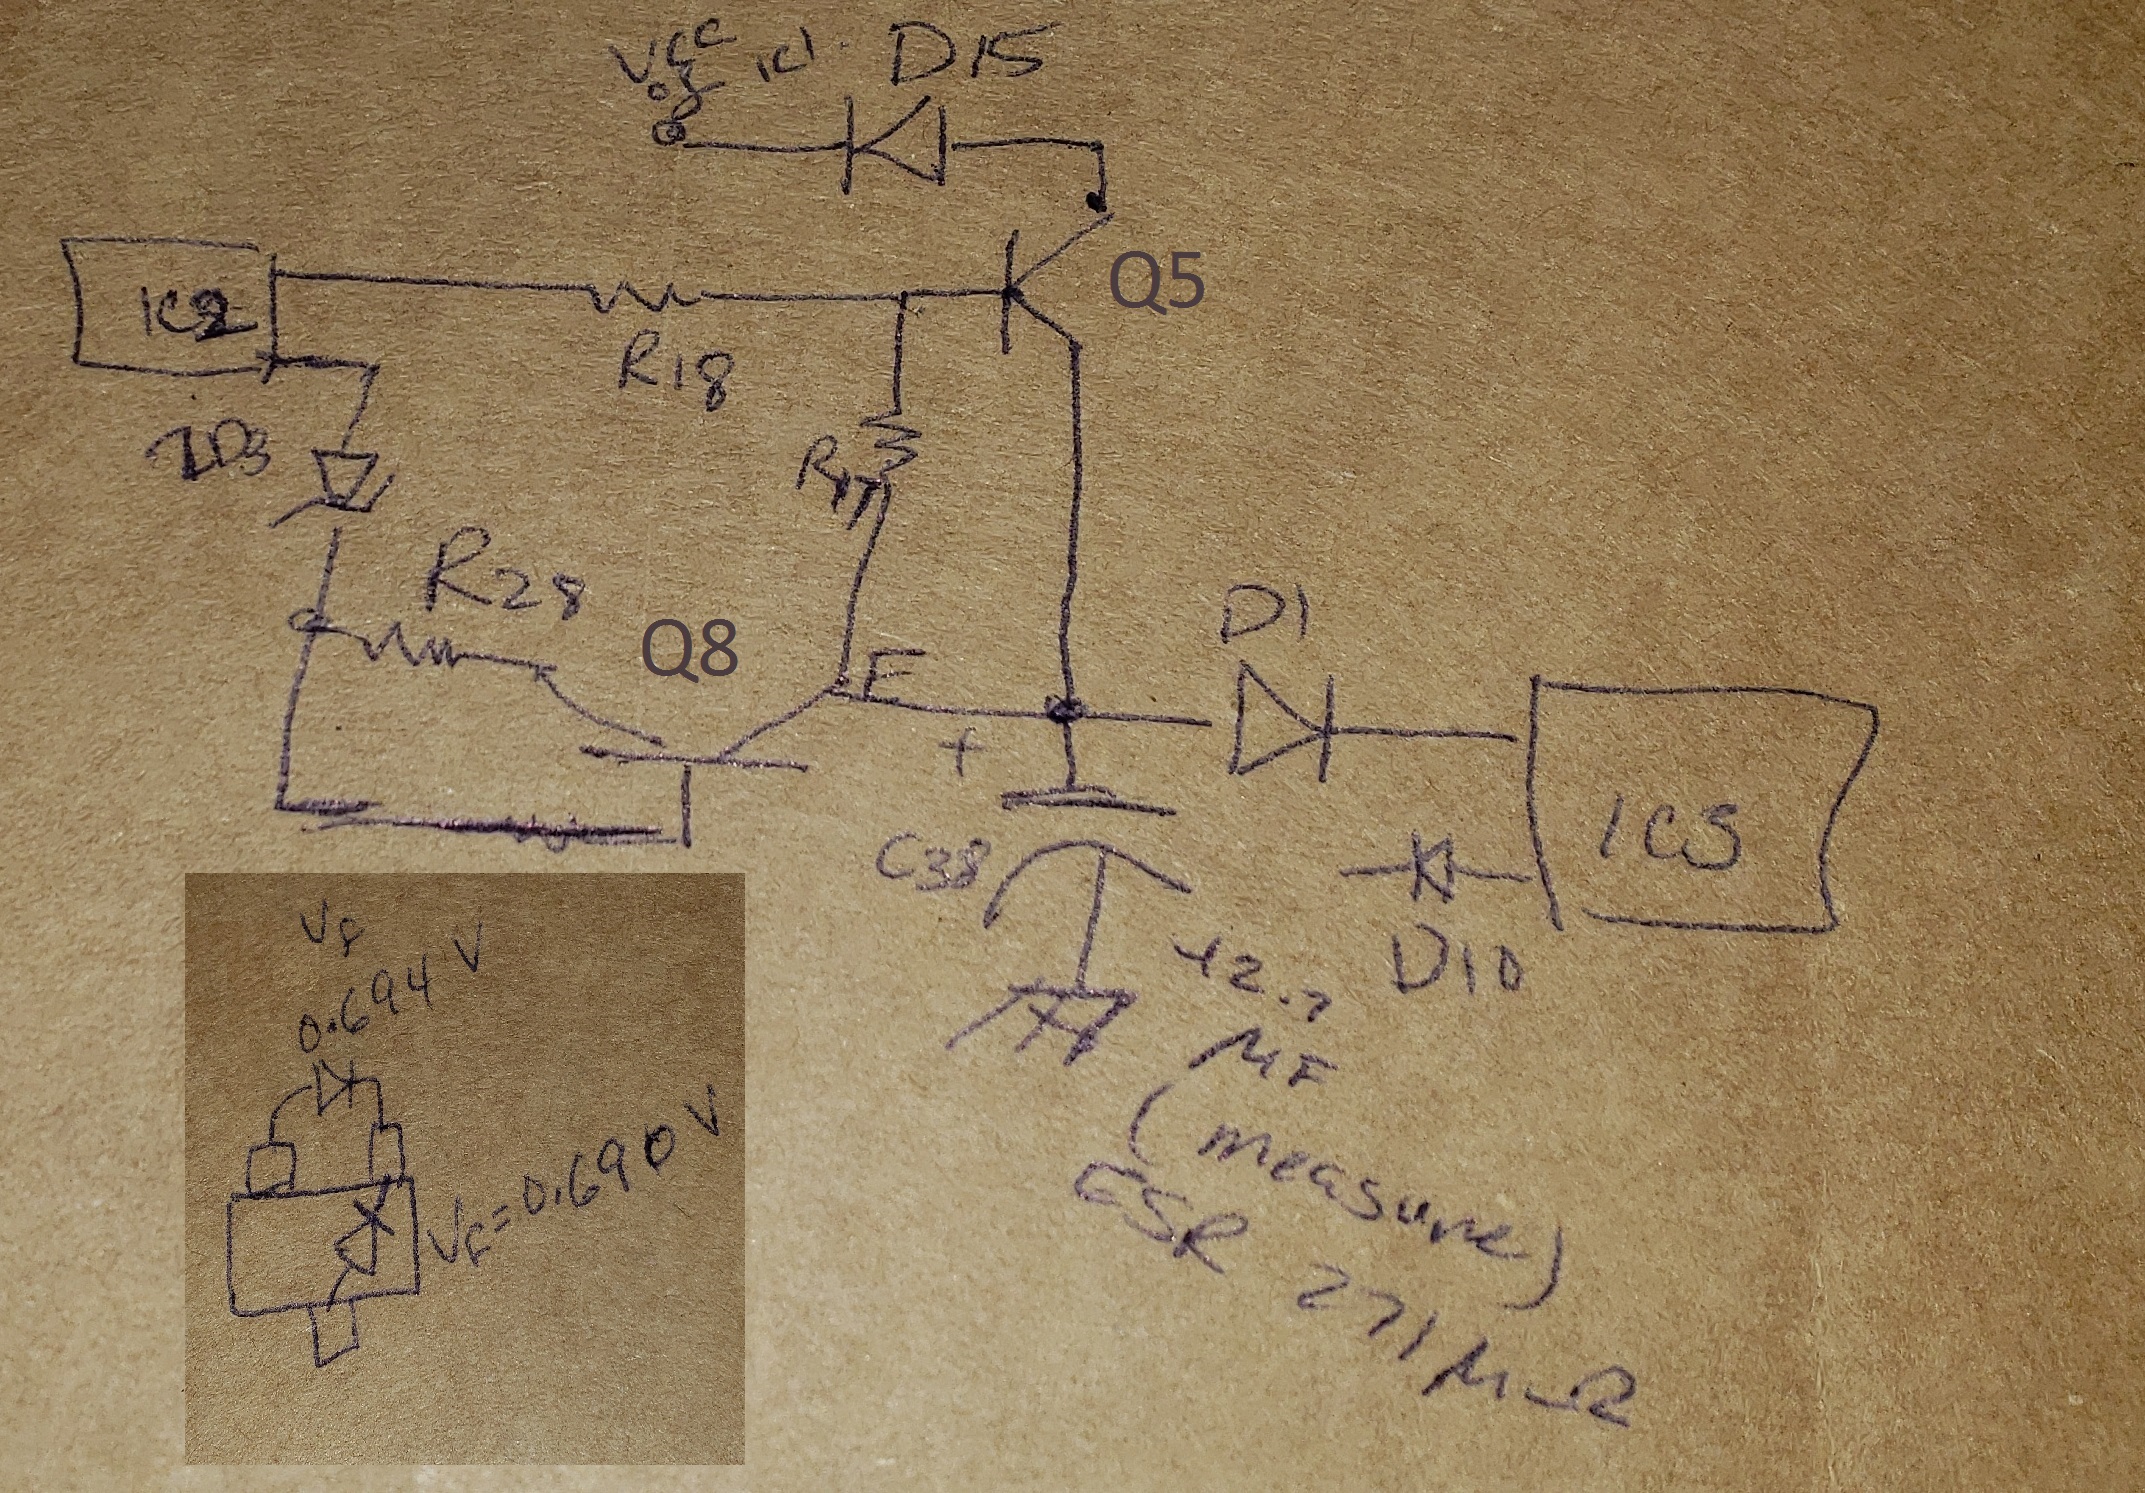 Vcc
of IC1.
D15
Q5
IC2
R18
ZD3
R17
R28
Q8
E
D1
+
IC5
C38
D10
42.7
µF
(measure)
ESR 271 mΩ
Vf
0.694 V
Vf=0.690 V